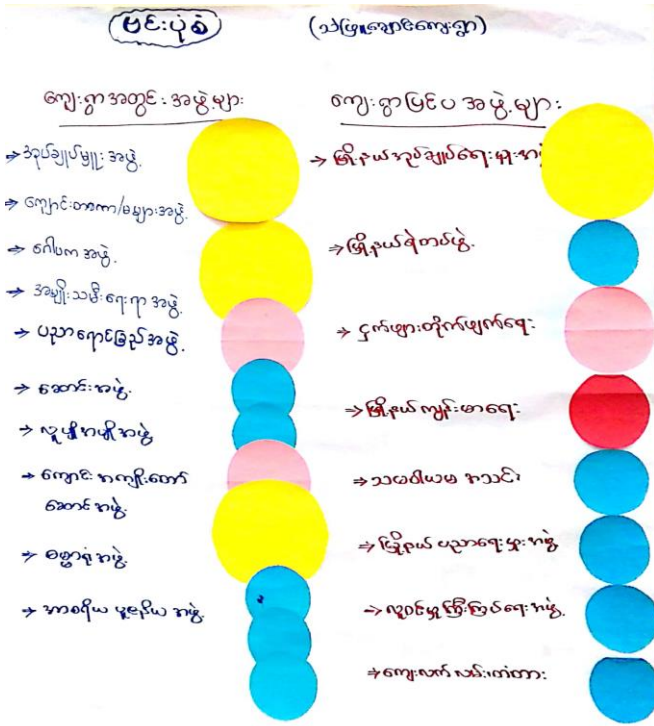 ဗင်းပုံစံ (သဲဖြူချောင်ကျေးရွာ)
ကျေးရွာအတွင်းအဖွဲ့များ
⇒ အုပ်ချုပ်မှူးအဖွဲ့
⇒ ကျောင်းတကာ/မများအဖွဲ့
⇒ ဂေါပကအဖွဲ့
⇒ အမျိုးသမီးရေးရာအဖွဲ့
⇒ ပညာရောင်ခြည်အဖွဲ့
⇒ ဆောင်းအဖွဲ့
⇒ လူပျိုအပျိုအဖွဲ့
⇒ ကျောင်းအကျိုးတော်
ဆောင်အဖွဲ့
⇒ ဓမ္မာရုံအဖွဲ့
⇒ အာစရိယပူဇနိယအဖွဲ့
ကျေးရွာပြင်ပအဖွဲ့များ
⇒ မြို့နယ်အုပ်ချုပ်ရေးမှူး
⇒ မြို့နယ်ရဲတပ်ဖွဲ့
⇒ ငှက်ဖျားတိုက်ဖျက်ရေး
⇒ မြို့နယ်ကျန်းမာရေး
⇒ သမဝါယမအသင်း
⇒ မြို့နယ်ပညာရေးမှူးအဖွဲ့
⇒ လူဝင်မှုကြီးကြပ်ရေးအဖွဲ့
⇒ ကျေးလက်လမ်းတံတား